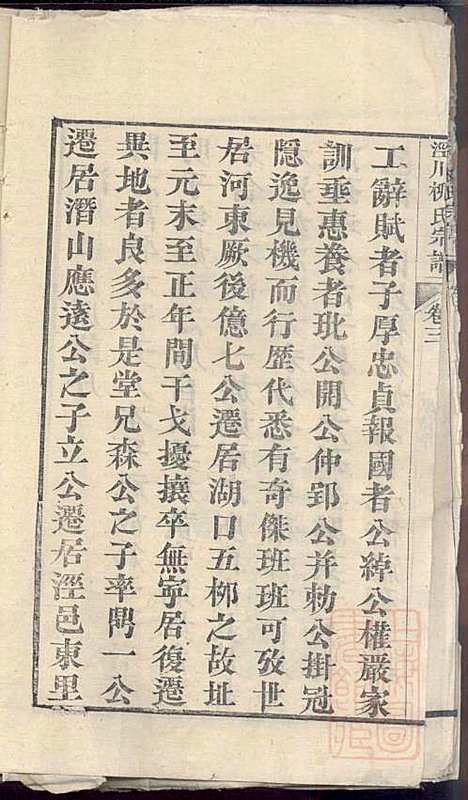 涇川柳氏宗譜
卷三
工辭賦者子厚忠貞報國者公綽公權嚴家
訓垂惠養者玭公開公仲郢公并勅公掛冠
隱逸見機而行歷代悉有奇傑班班可攷世
居河東厥後億七公遷居湖口五柳之故址
至元末至正年間干戈擾攘卒無寧居復遷
異地者良多於是堂兄森公之子率鬲一公
遷居潛山應遠公之子立公遷居涇邑東里